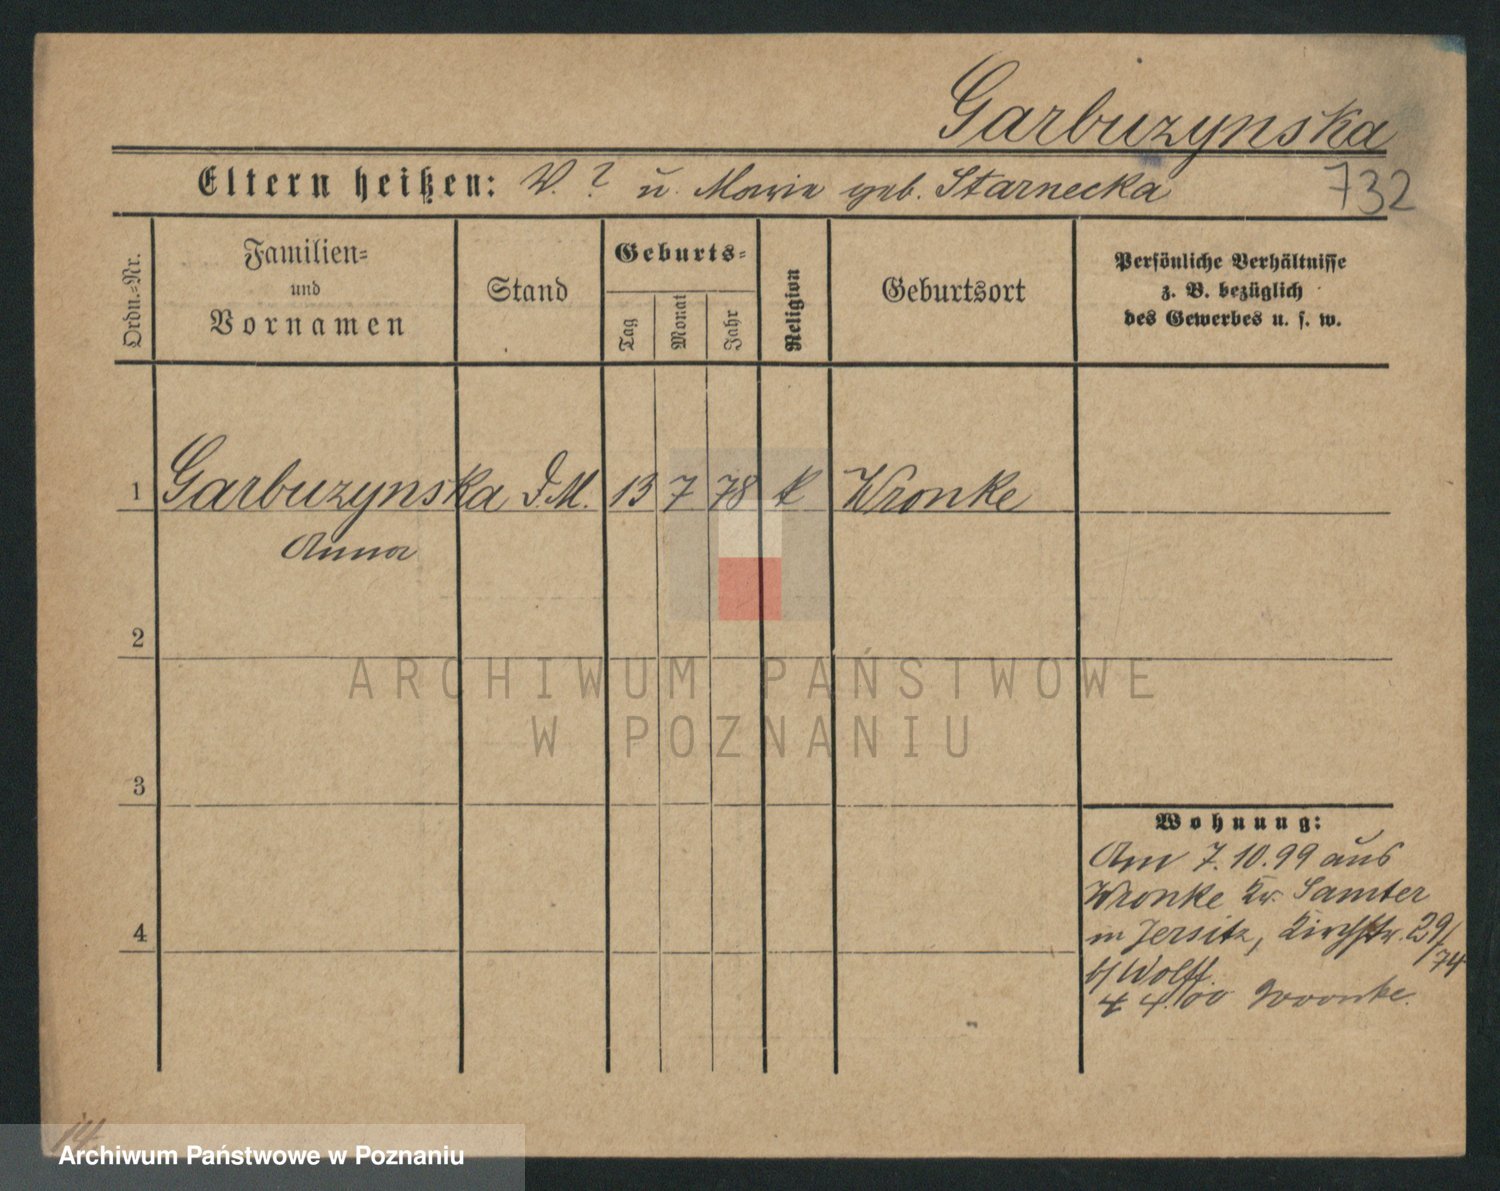 Garbuzynska
732
Eltern heißen: V. ? u. Maria geb. Starnecka
Ordn.=Nr.
Familien=
und
Vornamen
Stand
Geburts=
Tag
Monat
Jahr
Religion
Geburtsort
Persönliche Verhältnisse
z. B. bezüglich
des Gewerbes u. s. w.
1 Garbuzynska D.M. 13 7 78 k Wronke
Anna
2
3
4
Wohnung:
Am 7.10.99 aus
Wronke Kr. Samter
in Jersitz, Kirchstr. 29/
74
b/ Wolff.
4. 4. 00 Wronke.
14.
ARCHIWUM PAŃSTWOWE
W POZNANIU
Archiwum Państwowe w Poznaniu